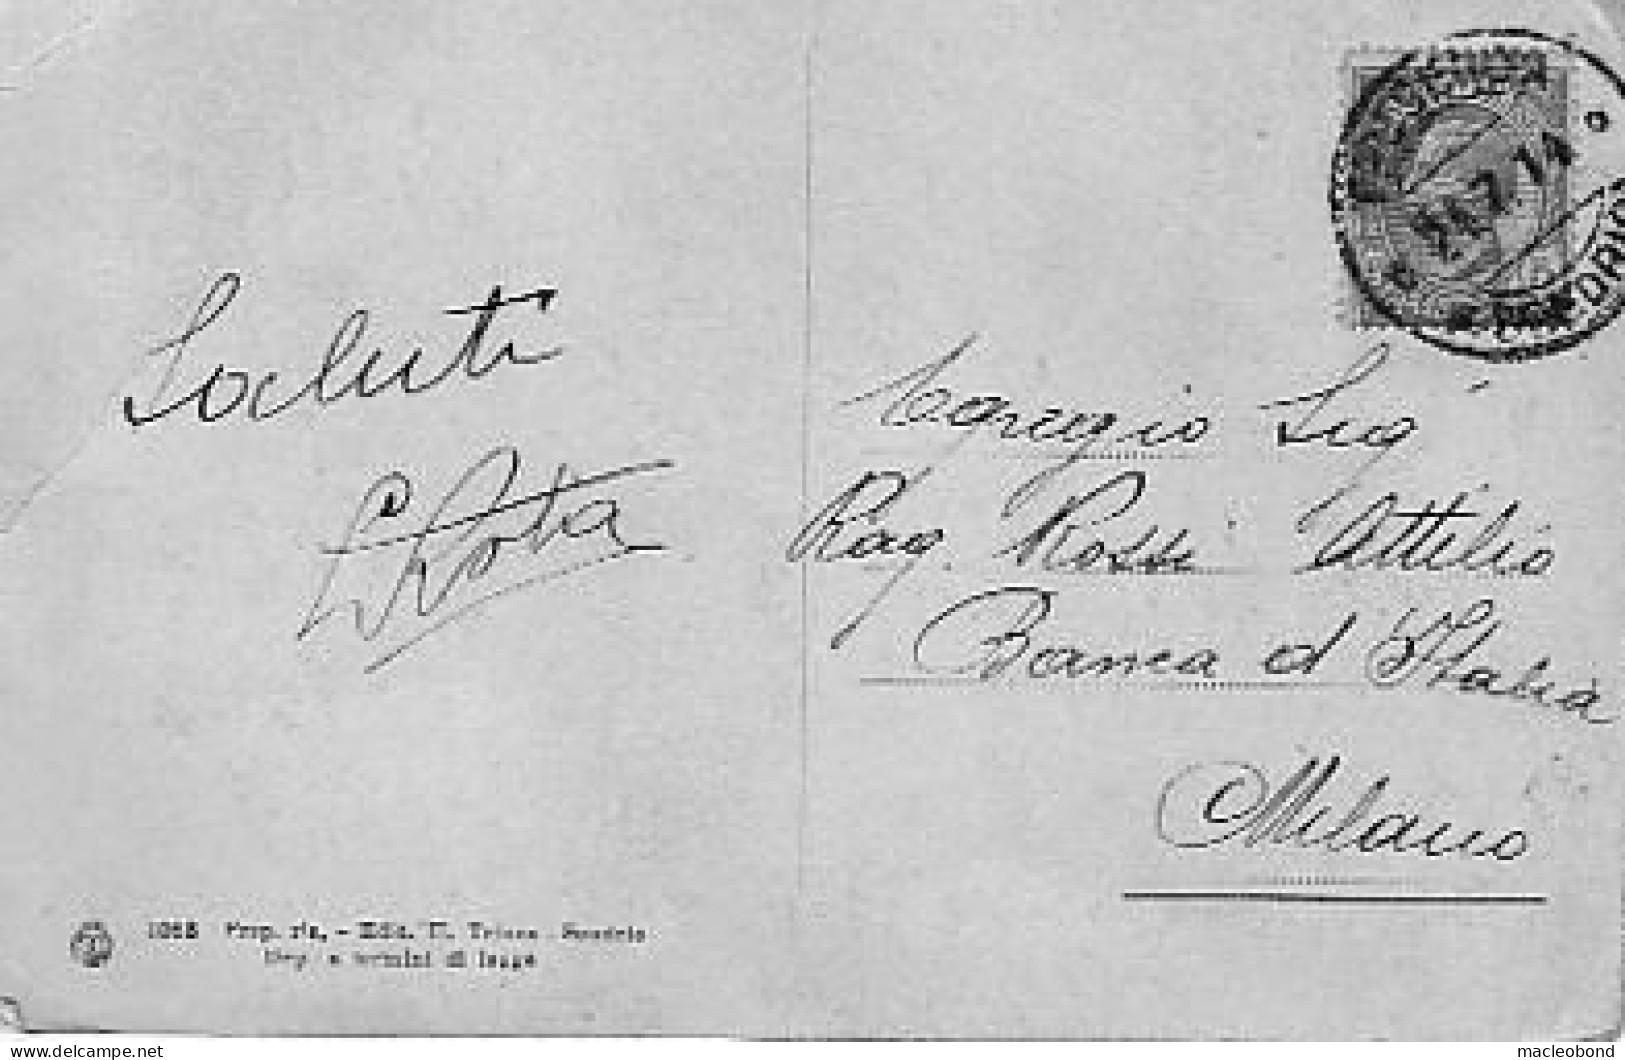 Saluti
Rota
Egregio Sig.
Rag. Rossi Attilio
Banca d'Italia
Milano
24.7.14
SONDRIO
1068 Prop. ris. - Ediz. Trinca - Sondrio
a termini di legge
delcampe.net
macleobond